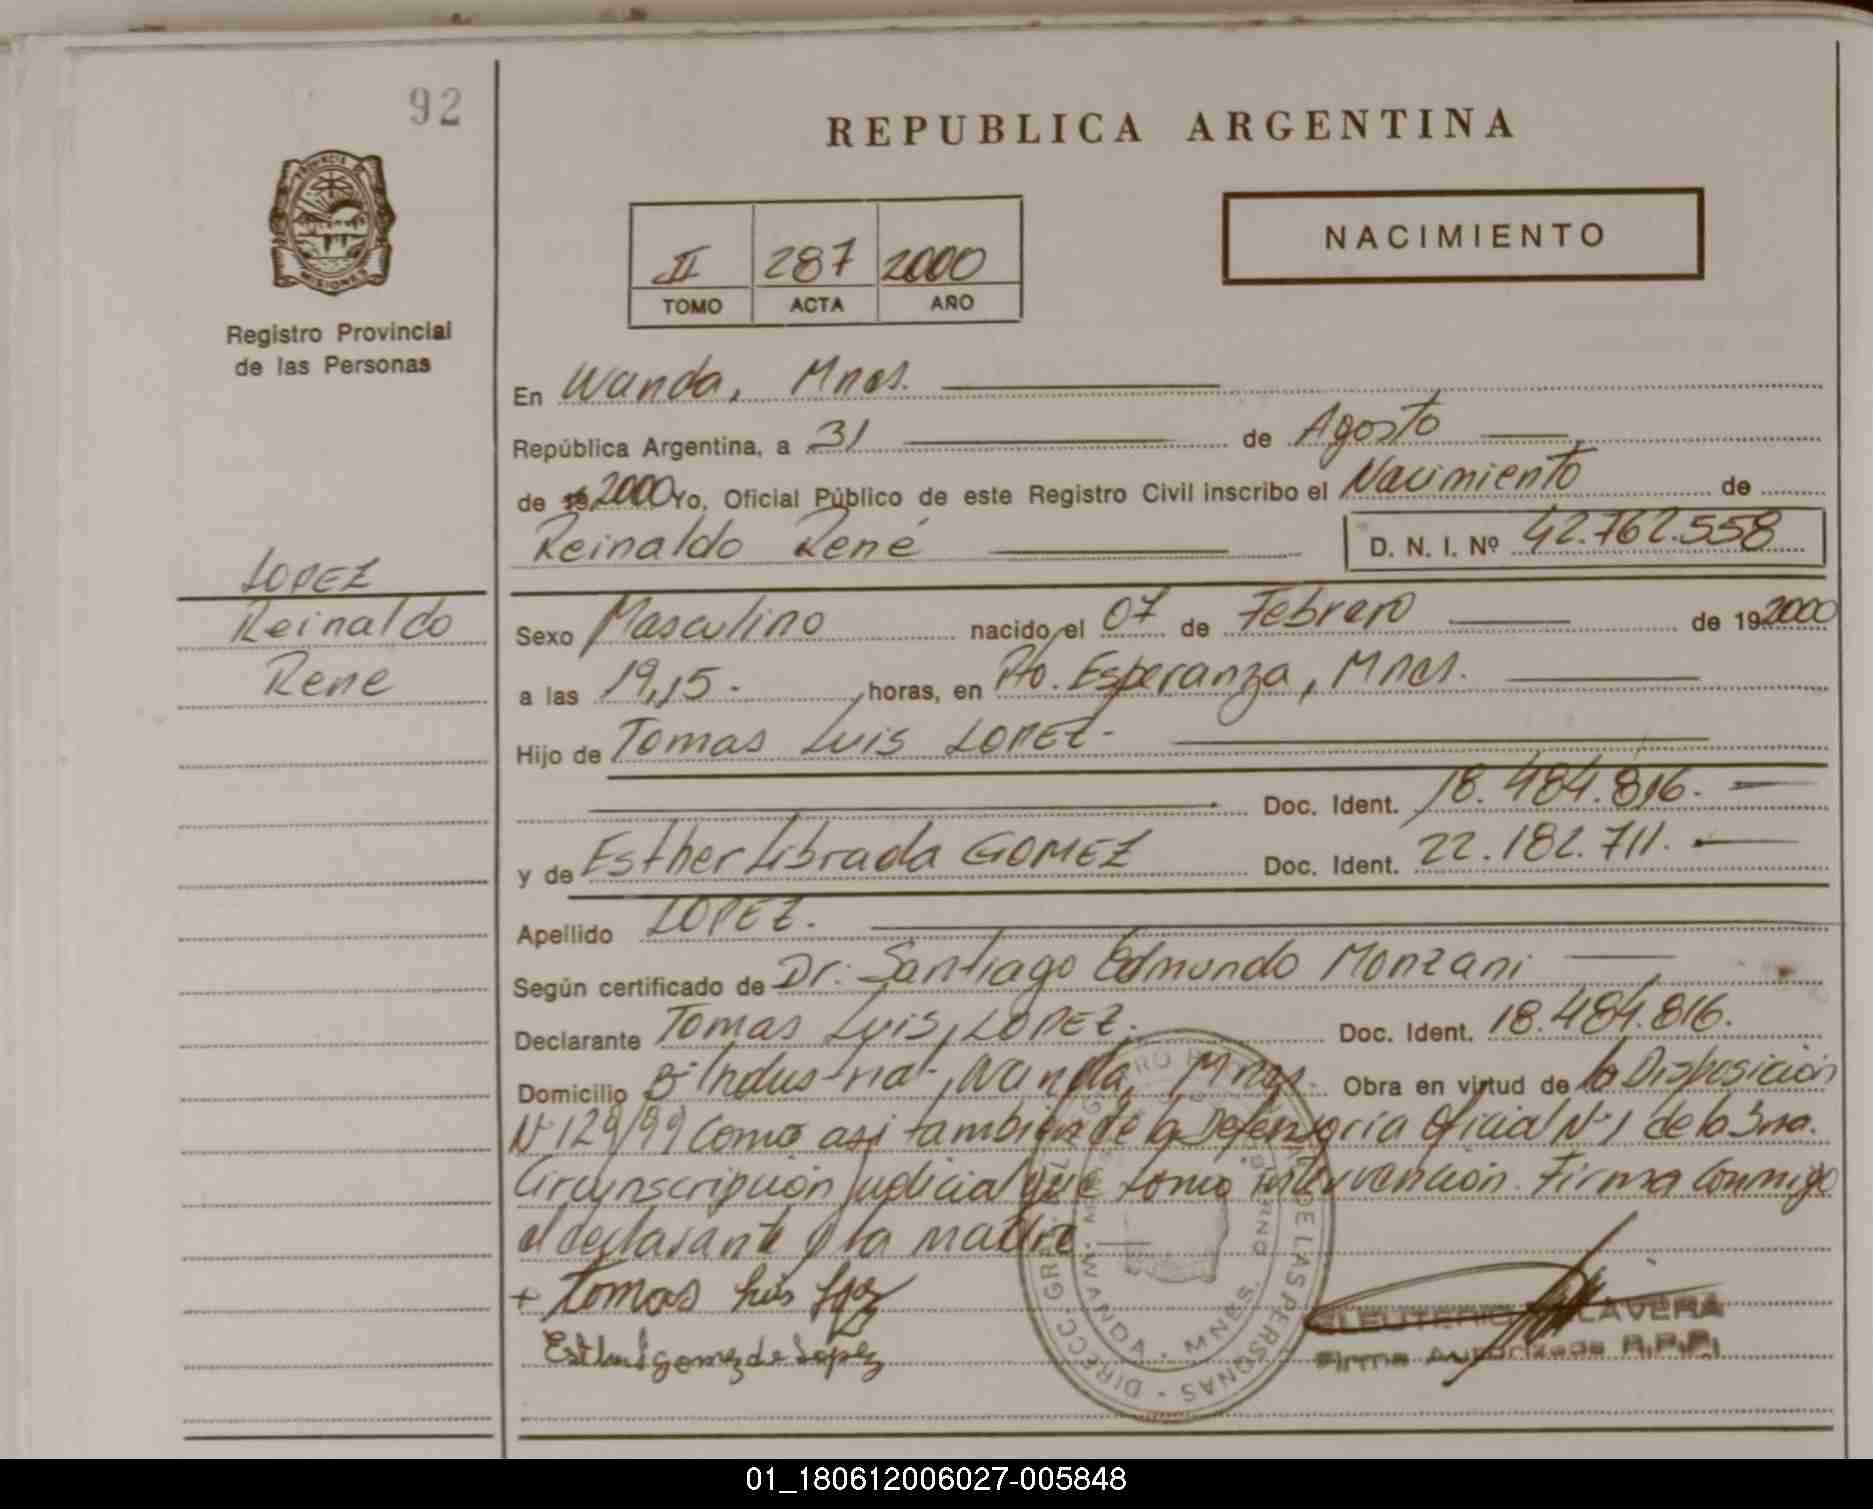 92
PROVINCIA
MISIONES
Registro Provincial
de las Personas
LOPEZ
Reinaldo
Rene
REPUBLICA ARGENTINA
II 287 2000
TOMO ACTA AÑO
NACIMIENTO
En Wanda, Mnes.
República Argentina, a 31 de Agosto
de 19 2000 Yo, Oficial Público de este Registro Civil inscribo el Nacimiento de
Reinaldo René D. N. I. Nº 42.762.558
Sexo Masculino nacido el 07 de Febrero de 19 2000
a las 19,15. horas, en Pto. Esperanza, Mnes.
Hijo de Tomas Luis LOPEZ.
Doc. Ident. 18.484.816.
y de Esther Librada GOMEZ Doc. Ident. 22.182.711.
Apellido LOPEZ.
Según certificado de Dr. Santiago Edmundo Monzani
Declarante Tomas Luis LOPEZ. Doc. Ident. 18.484.816.
Domicilio Bº Industrial, Wanda, Mnes. Obra en virtud de la Disposición
Nº 129/99 Como asi también de la Defensoría Oficial Nº 1 de la 3ra.
Circunscripción Judicial que tomo intervención. Firma Conmigo
el declarante y la madre
+ Tomas Luis Lopez
Esther L gomez de Lopez
DIRECC. GRAL. DE LAS PERSONAS
WANDA - MNES.
ELEUTERIO TALAVERA
Firma Autorizada R.P.P.
01_180612006027-005848